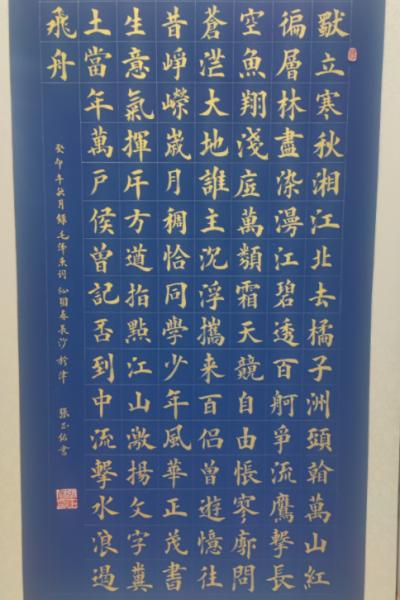 獨立寒秋湘江北去橘子洲頭看萬山紅
徧層林盡染漫江碧透百舸爭流鷹擊長
空魚翔淺底萬類霜天競自由悵寥廓問
蒼茫大地誰主沉浮攜来百侣曾遊憶往
昔崢嶸歲月稠恰同學少年風華正茂書
生意氣揮斥方遒指點江山激揚文字糞
土當年萬戶侯曾記否到中流擊水浪遏
飛舟
癸卯年秋月錄毛澤東詞沁園春長沙於津 張正書